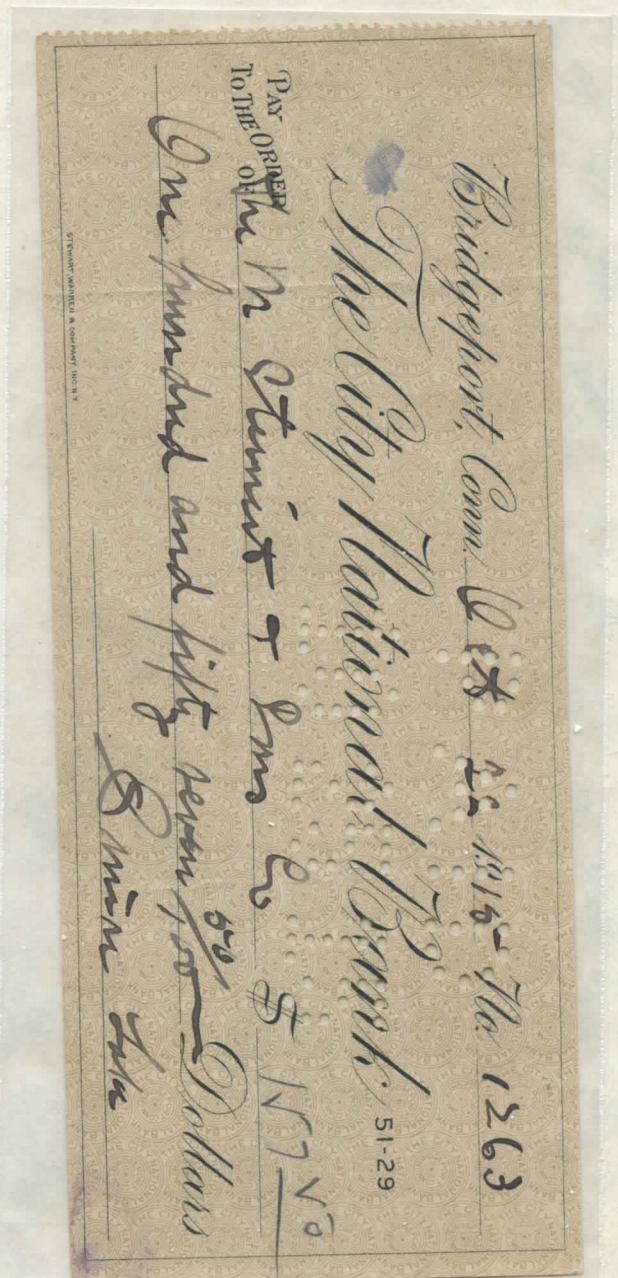 Bridgeport, Conn. Oct 22 1915 No. 1263
The City National Bank 51-29
PAY TO THE ORDER OF The M Steinert & Sons Co $157 50
One hundred and fifty seven 50/100 Dollars
Simon Lake
STEWART WARREN & COMPANY INC. N.Y.